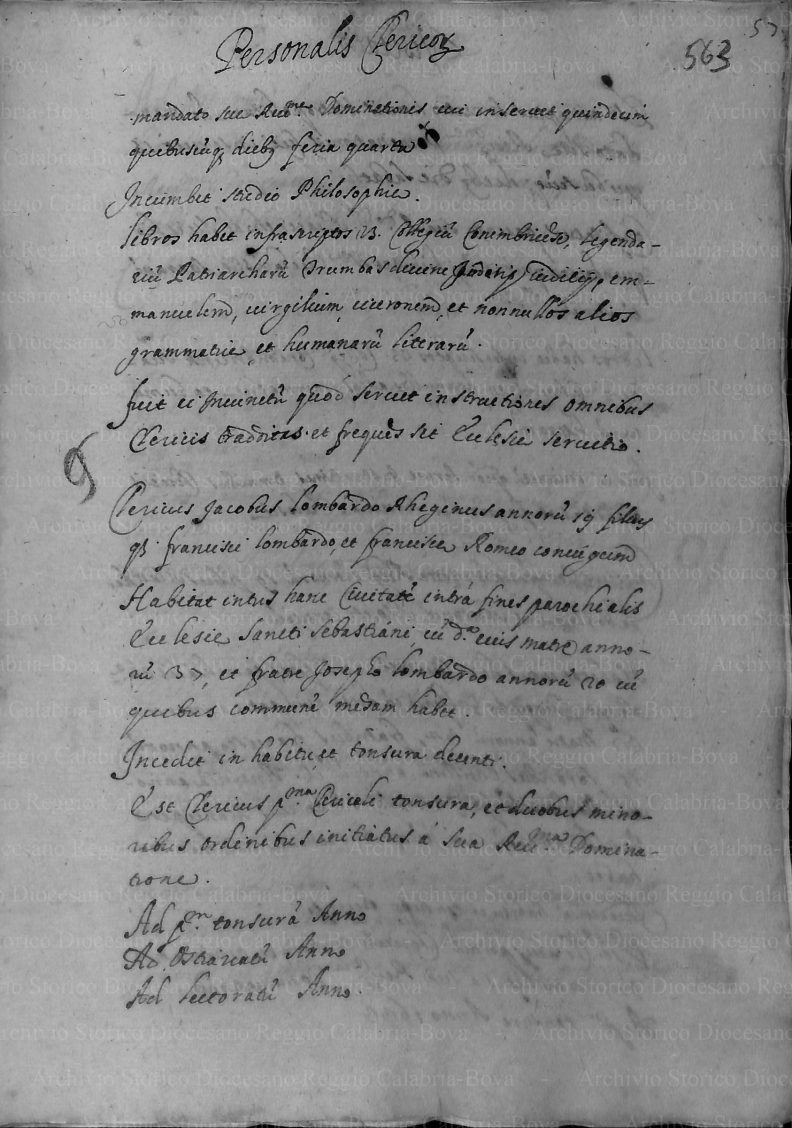 Personalis Clericoꝝ
563
57
mandato sue Reu.me Dominationis cui inseruit quindecim
quibuscuq; dieb; feria quarta
Incumbit studio Philosophie.
libros habet infrascriptos 23. Collegiũ Conimbricẽse, legenda-
riũ Patriarcharũ diuine em-
manuelem, uirgilium, ciceronem, et nonnullos alios
grammatice et humanarũ literarũ.
fuit ei iniunctũ quod seruet instructiones omnibus
Clericis traditas et frequẽs sit Ecclesie seruitio.
Clericus Jacobus lombardo Rheginus annorũ 19 filius
qͦ. francisci lombardo, et francisce Romeo coniugum
Habitat intus hanc Ciuitatẽ intrà fines parochialis
Ecclesie Sancti Sebastiani cũ d.a eius matre anno-
rũ 37, et fratre Josepho lombardo annorũ 20 cũ
quibus communẽ mensam habet.
Incedit in habitu, et tonsura decenti.
Est Clericus p.ma Clericali tonsura, et duobus mino-
ribus ordinibus initiatus à sua Reu.ma Domina-
tione.
Ad p.am tonsurã Anno
Ad Ostiariatũ Anno
Ad lectoratũ Anno.
Archivio Storico Diocesano Reggio Calabria-Bova